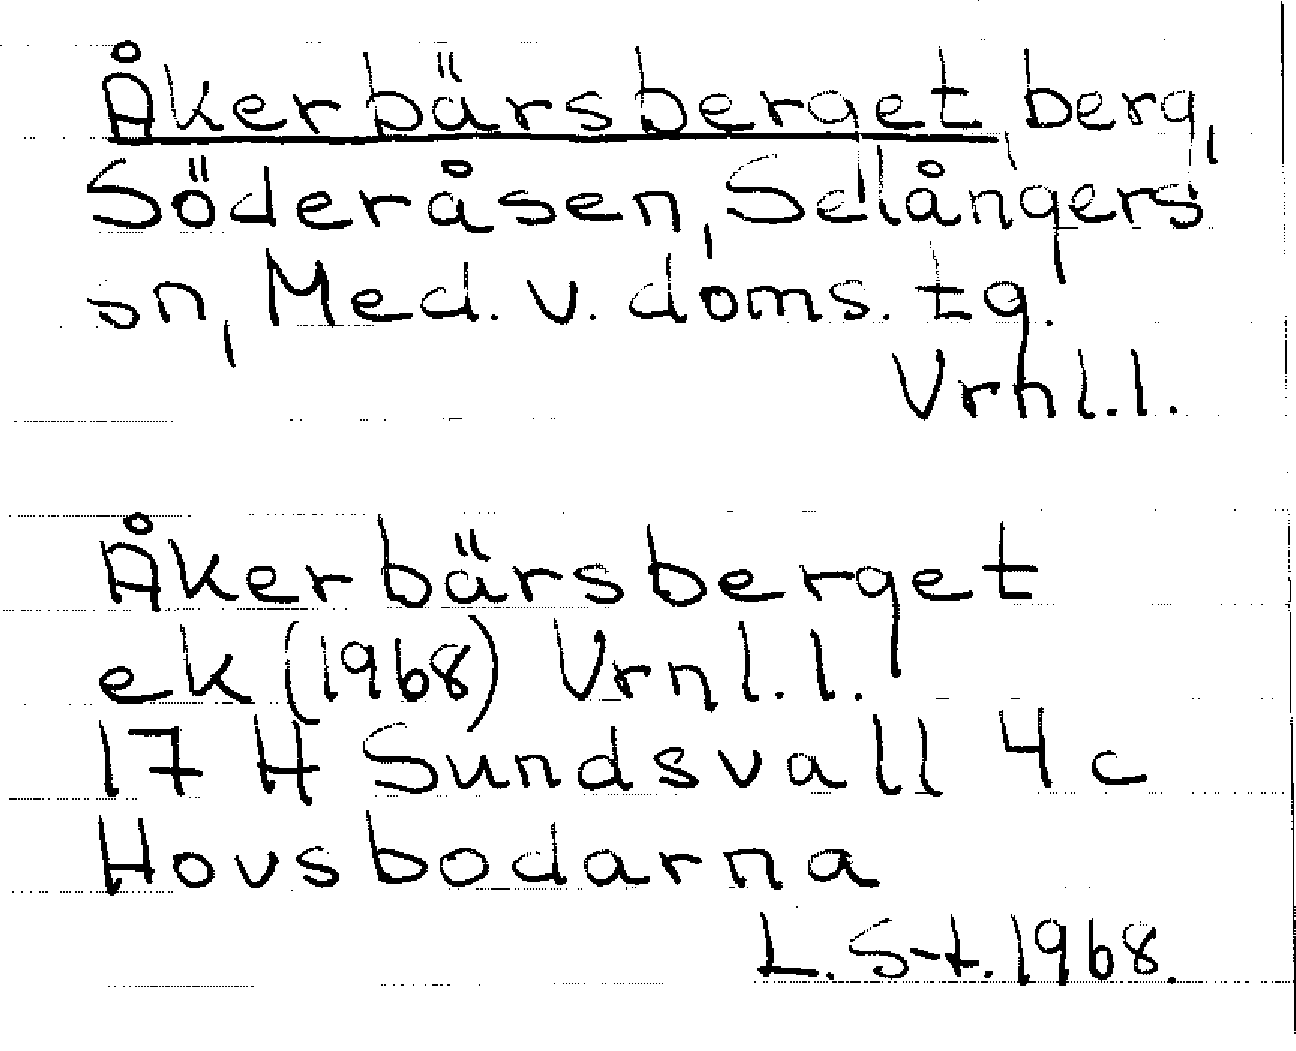 Åkerbärsberget, berg,
Söderåsen, Selångers
sn, Med. v. doms. tg.
Vrnl.l.
Åkerbärsberget
ek (1968) Vrnl.l.
17 H Sundsvall 4c
Hovsbodarna
L. S-t. 1968.